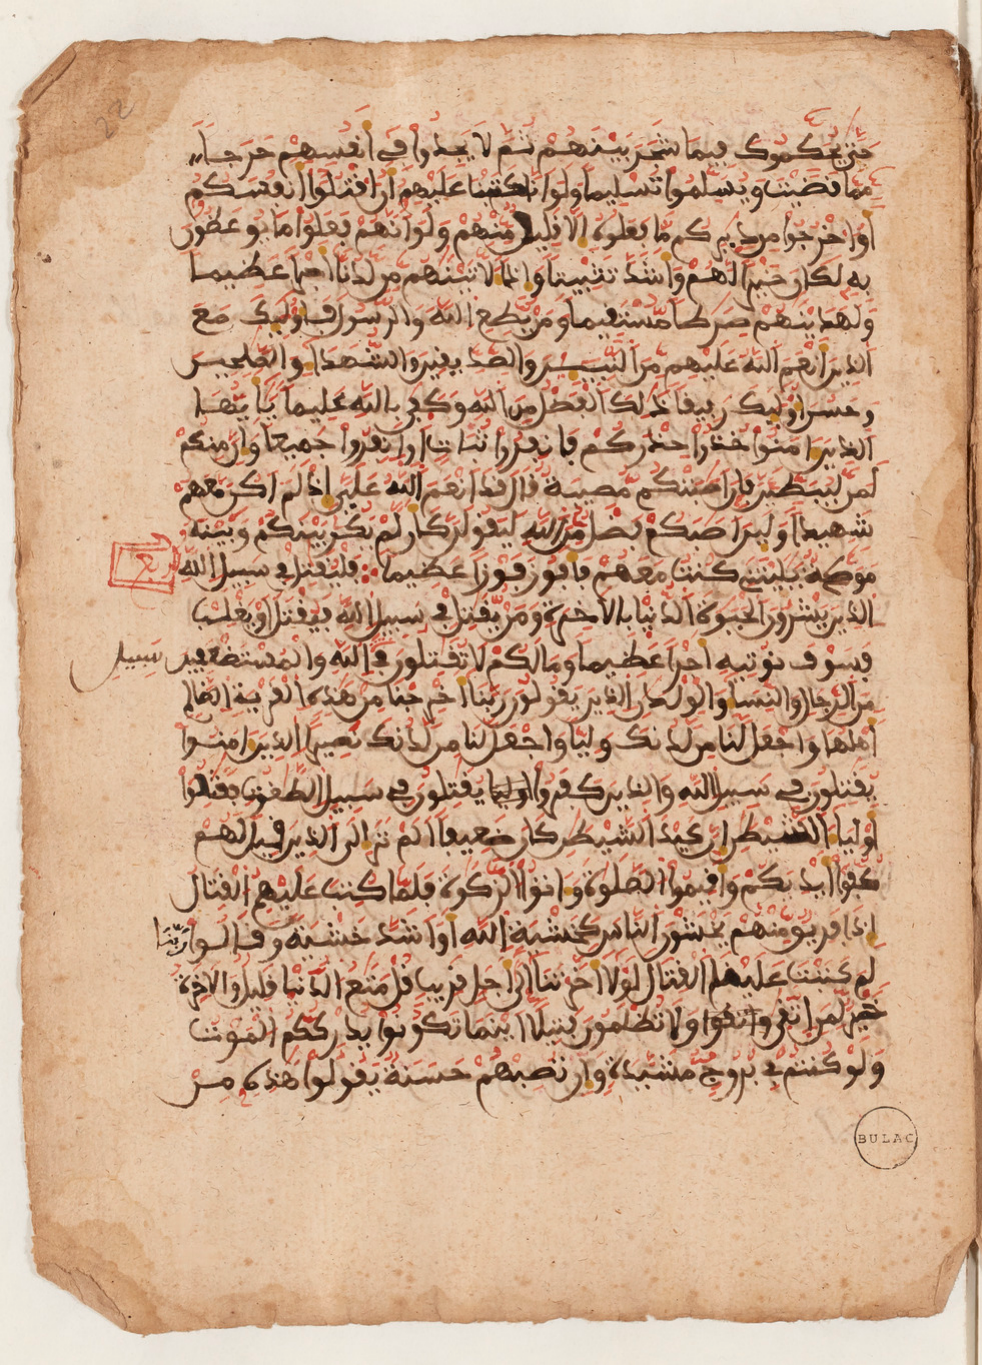 حتى يحكموك فيما شجر بينهم ثم لا يجدوا في أنفسهم حرجا
مما قضيت ويسلموا تسليما ولو أنا كتبنا عليهم أن اقتلوا أنفسكم
أو اخرجوا من ديركم ما فعلوه إلا قليل منهم ولو أنهم فعلوا ما يوعظون
به لكان خيرا لهم وأشد تثبيتا وإذا لأتينهم من لدنا أجرا عظيما
ولهدينهم صرطا مستقيما ومن يطع الله والرسول فأوليك مع
الذين أنعم الله عليهم من النبيين والصديقين والشهدا والصلحين
وحسن أوليك رفيقا ذلك الفضل من الله وكفى بالله عليما يأيها
الذين امنوا خذوا حذركم فانفروا ثبات أو انفروا جميعا وإن منكم
لمن ليبطين فإن أصبتكم مصيبة قال قد أنعم الله علي إذ لم أكن معهم
شهيدا ولين أصبكم فضل من الله ليقولن كأن لم تكن بينكم وبينه
مودة يليتني كنت معهم فأفوز فوزا عظيما فليقتل في سبيل الله
الذين يشرون الحيوة الدنيا بالاخرة ومن يقتل في سبيل الله فيقتل أو يغلب
فسوف نوتيه أجرا عظيما وما لكم لا تقتلون في الله والمستضعفين سبيل
من الرجال والنسا والولدن الذين يقولون ربنا أخرجنا من هذه القرية الظالم
أهلها واجعل لنا من لدنك وليا واجعل لنا من لدنك نصيرا الذين امنوا
يقتلون في سبيل الله والذين كفروا يقتلون في سبيل الطغوت فقتلوا
أوليا الشيطن إن كيد الشيطن كان ضعيفا ألم تر إلى الذين قيل لهم
كفوا أيديكم وأقيموا الصلوة واتوا الزكوة فلما كتب عليهم القتال
إذا فريق منهم يخشون الناس كخشية الله أو أشد خشية وقالوا ربنا
لم كتبت علينا القتال لولا أخرتنا إلى أجل قريب قل متع الدنيا قليل والاخرة
خير لمن اتقى ولا تظلمون فتيلا أينما تكونوا يدرككم الموت
ولو كنتم في بروج مشيدة وإن تصبهم حسنة يقولوا هذه من
BULAC